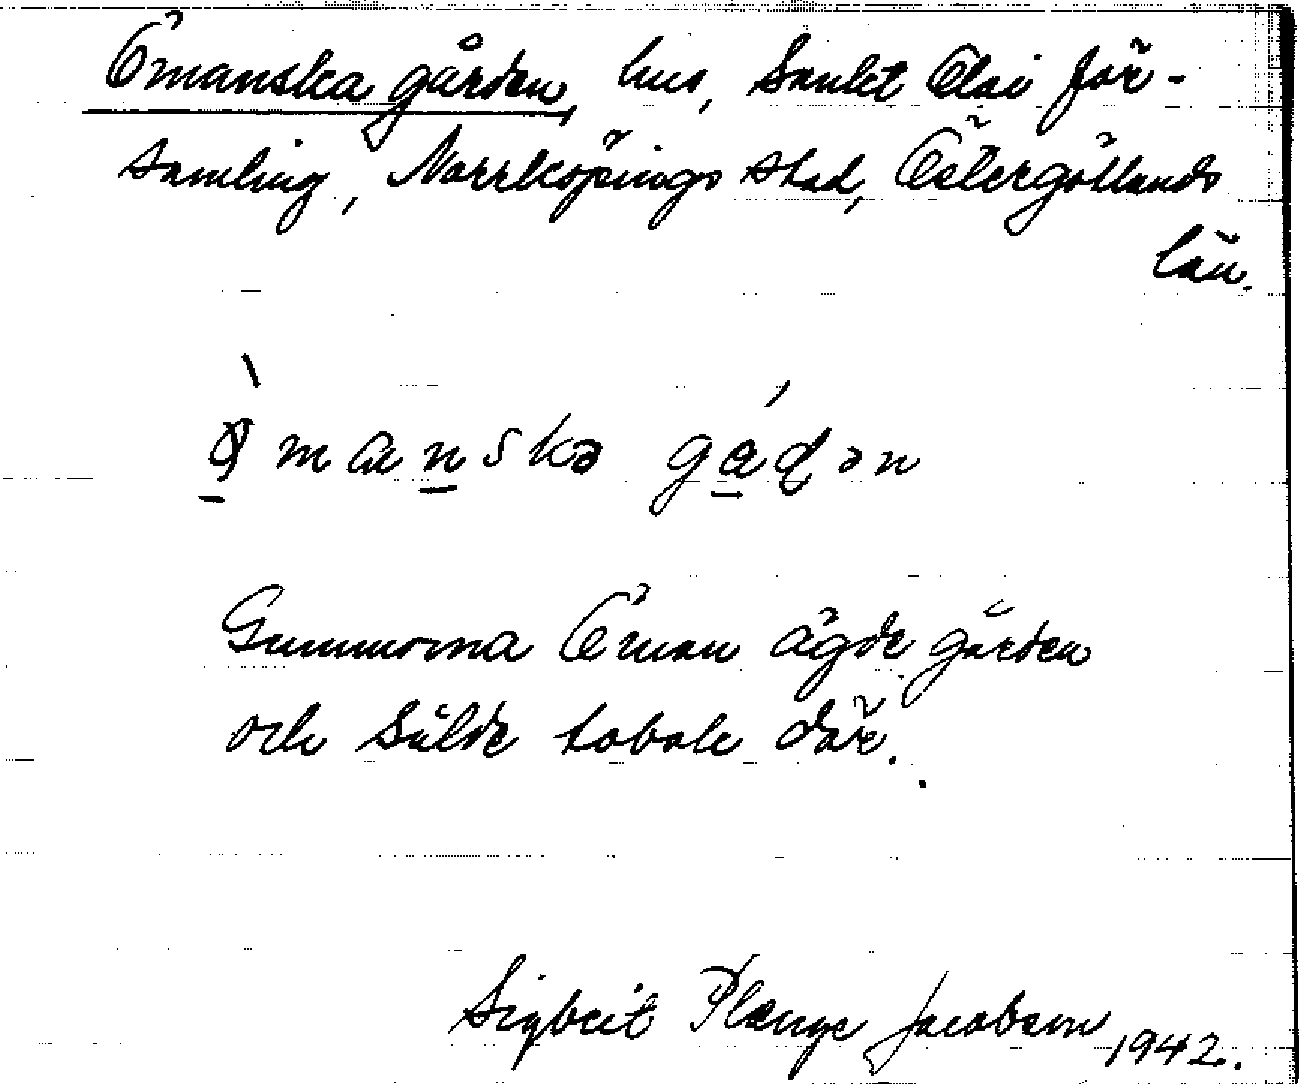 Ömanska gården, hus, Sankt Olai för-
samling, Norrköpings stad, Östergötlands
län.
manskə
Gummorna Öman ägde gården
och sålde tobak där.
Sigbrit Plænge Jacobson 1942.